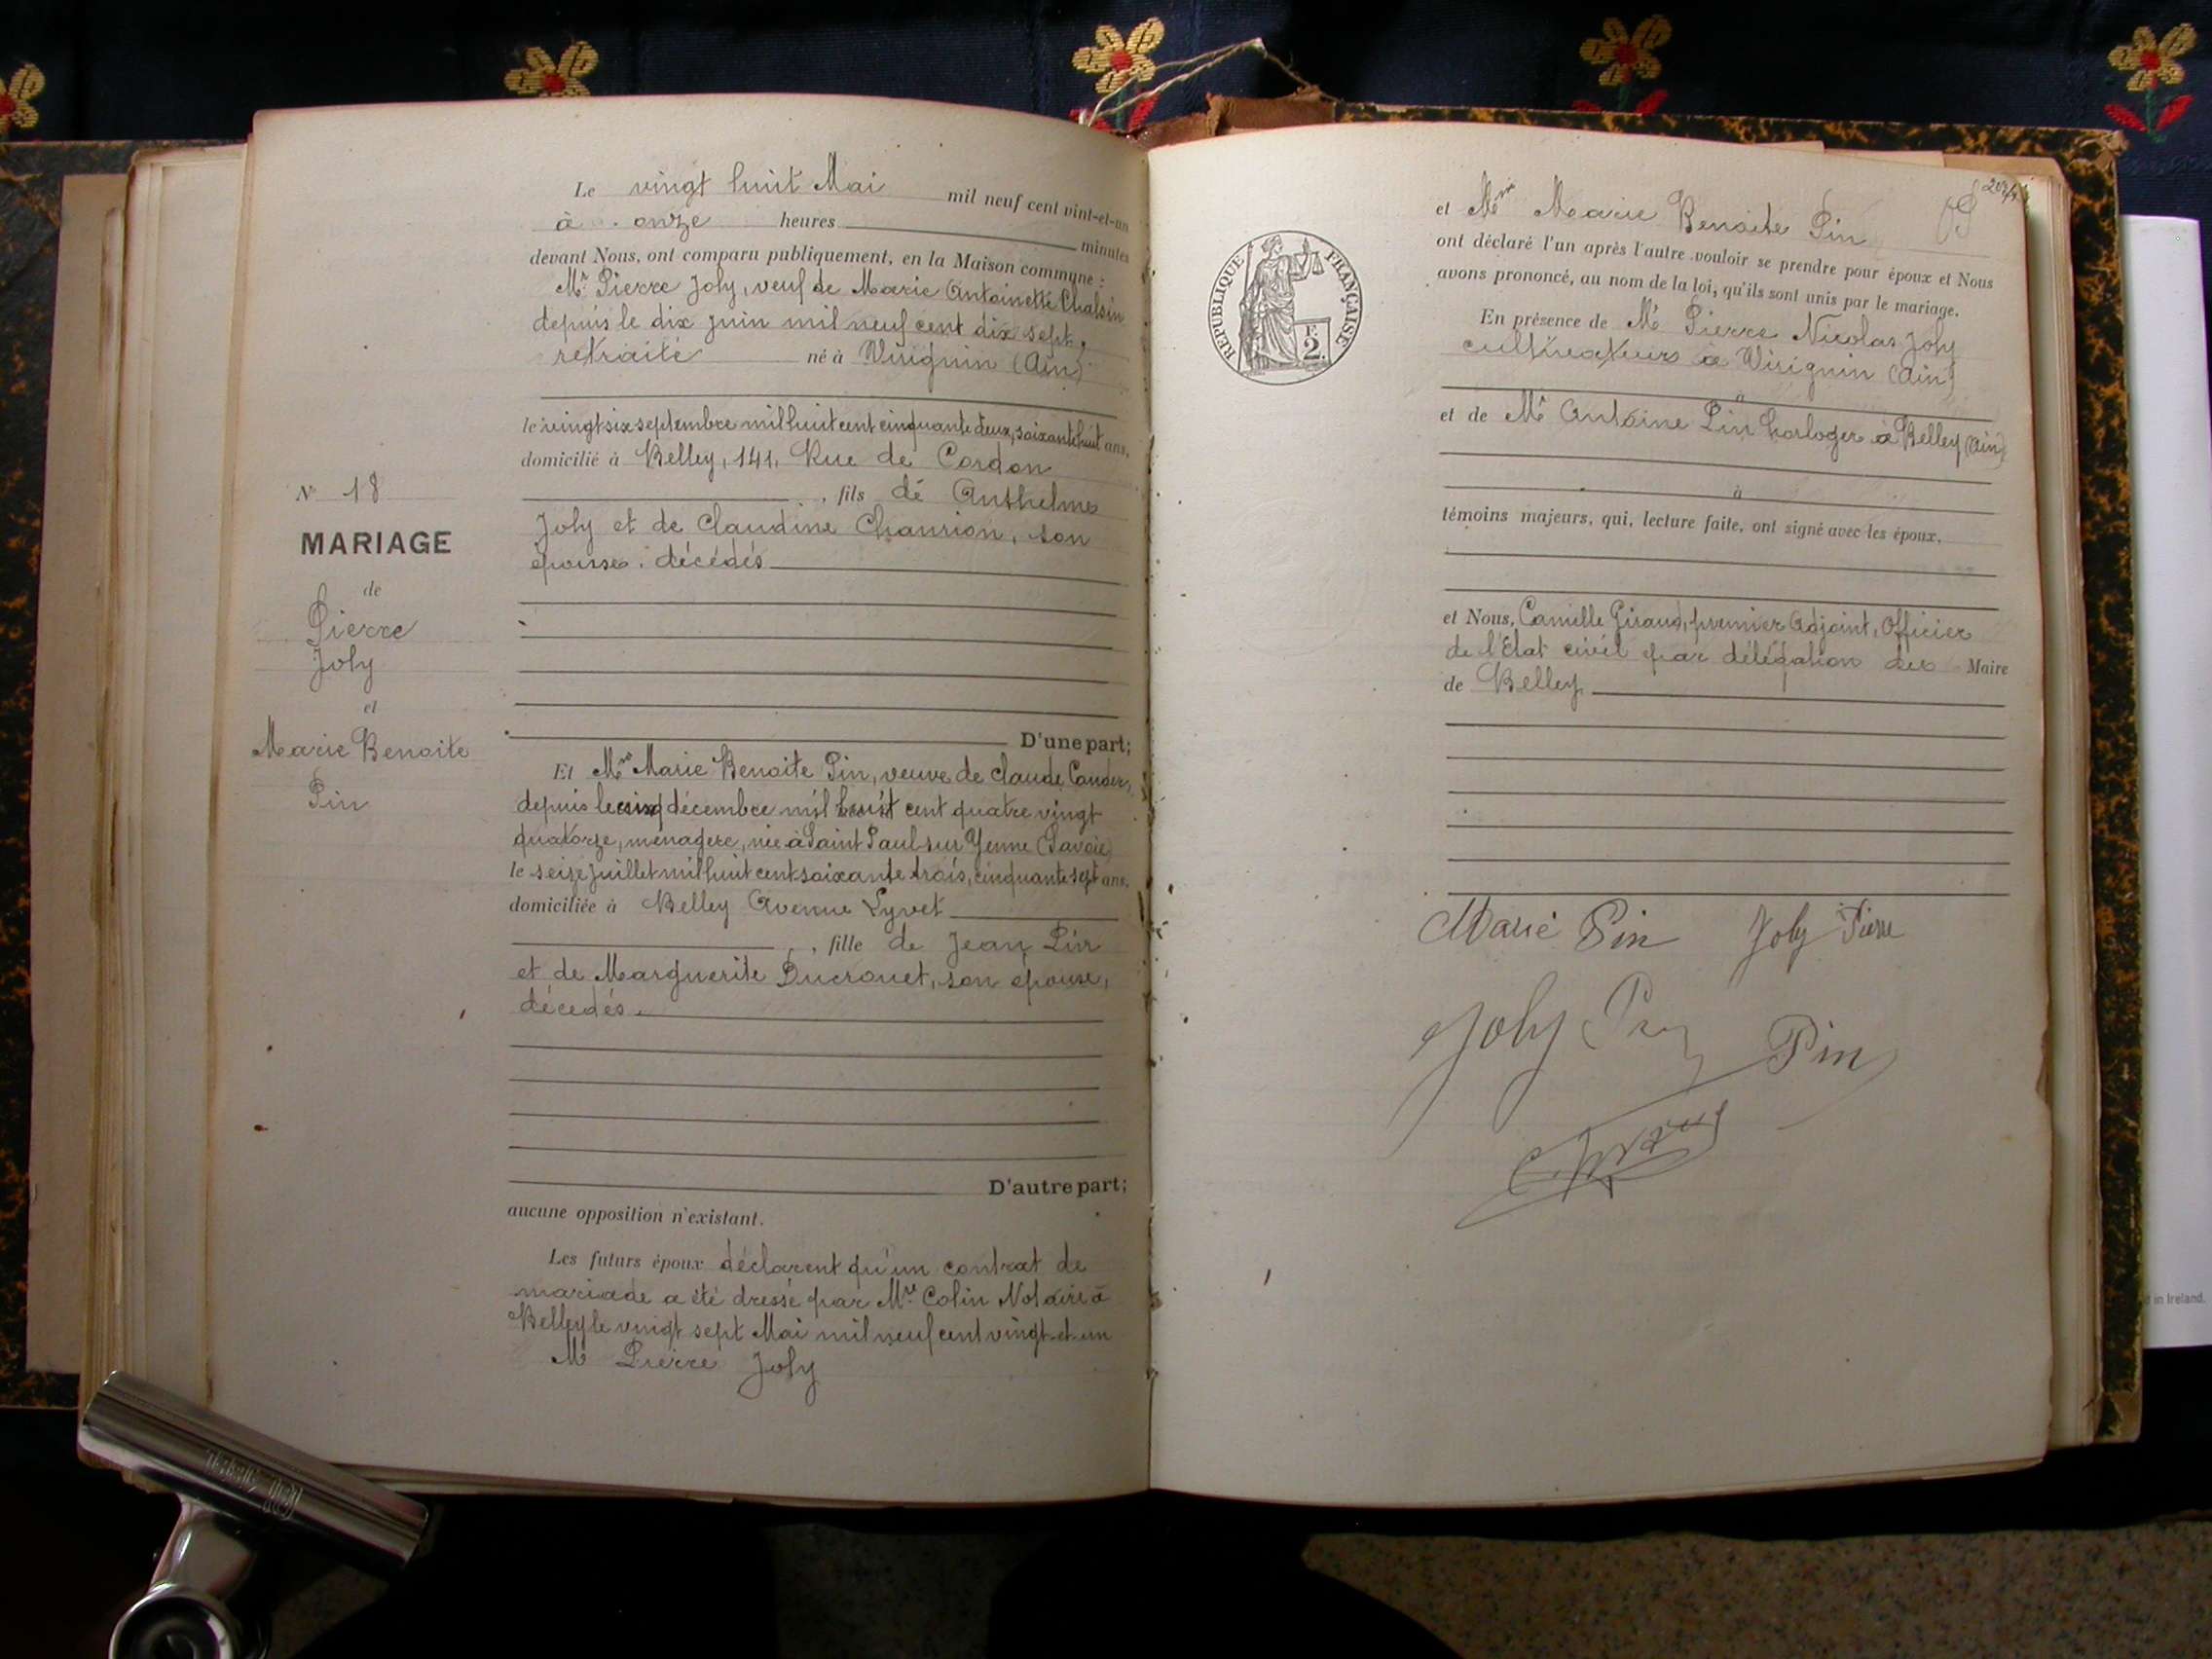 Le vingt huit Mai mil neuf cent vint-et-un
à onze heures minutes
devant Nous, ont comparu publiquement, en la Maison commune :
Mr Pierre Joly, veuf de Marie Antoinette Chalsin
depuis le dix juin mil neuf cent dix sept,
retraité né à Virignin (Ain)
le vingt six septembre mil huit cent cinquante deux, soixante huit ans,
domicilié à Belley, 141, Rue de Cordon
, fils de Anthelme
Joly et de Claudine Chanrion, son
épouse : décédés
N° 18
MARIAGE
de
Pierre
Joly
et
Marie Benoite
Pin
D'une part;
Et Mme Marie Benoite Pin, veuve de Claude Cander,
depuis le cinq décembre mil huit cent quatre vingt
quatorze, ménagère, née à Saint Paul-sur Yenne (Savoie)
le seize juillet mil huit cent soixante trois, cinquante sept ans,
domiciliée à Belley Avenue Lyvet
, fille de Jean Pin
et de Marguerite Ducrouet, son épouse,
décédés.
D'autre part;
aucune opposition n'existant.
Les futurs époux déclarent qu'un contrat de
mariade a été dressé par Me Colin Notaire à
Belley le vingt sept Mai mil neuf cent vingt-et-un
Mr Pierre Joly
et Mme Marie Benoite Pin
ont déclaré l'un après l'autre vouloir se prendre pour époux et Nous
avons prononcé, au nom de la loi, qu'ils sont unis par le mariage.
REPUBLIQUE FRANÇAISE
F.
2.
En présence de Mr Pierre Nicolas Joly
cultivateur à Virignin (Ain)
à
et de Mr Antoine Pin horloger à Belley (Ain)
à
témoins majeurs, qui, lecture faite, ont signé avec les époux,
et Nous, Camille Giraud, premier Adjoint, Officier
de l'Etat civil par délégation du Maire
de Belley
Marie Pin Joly Pierre
Joly
Pin
in Ireland.